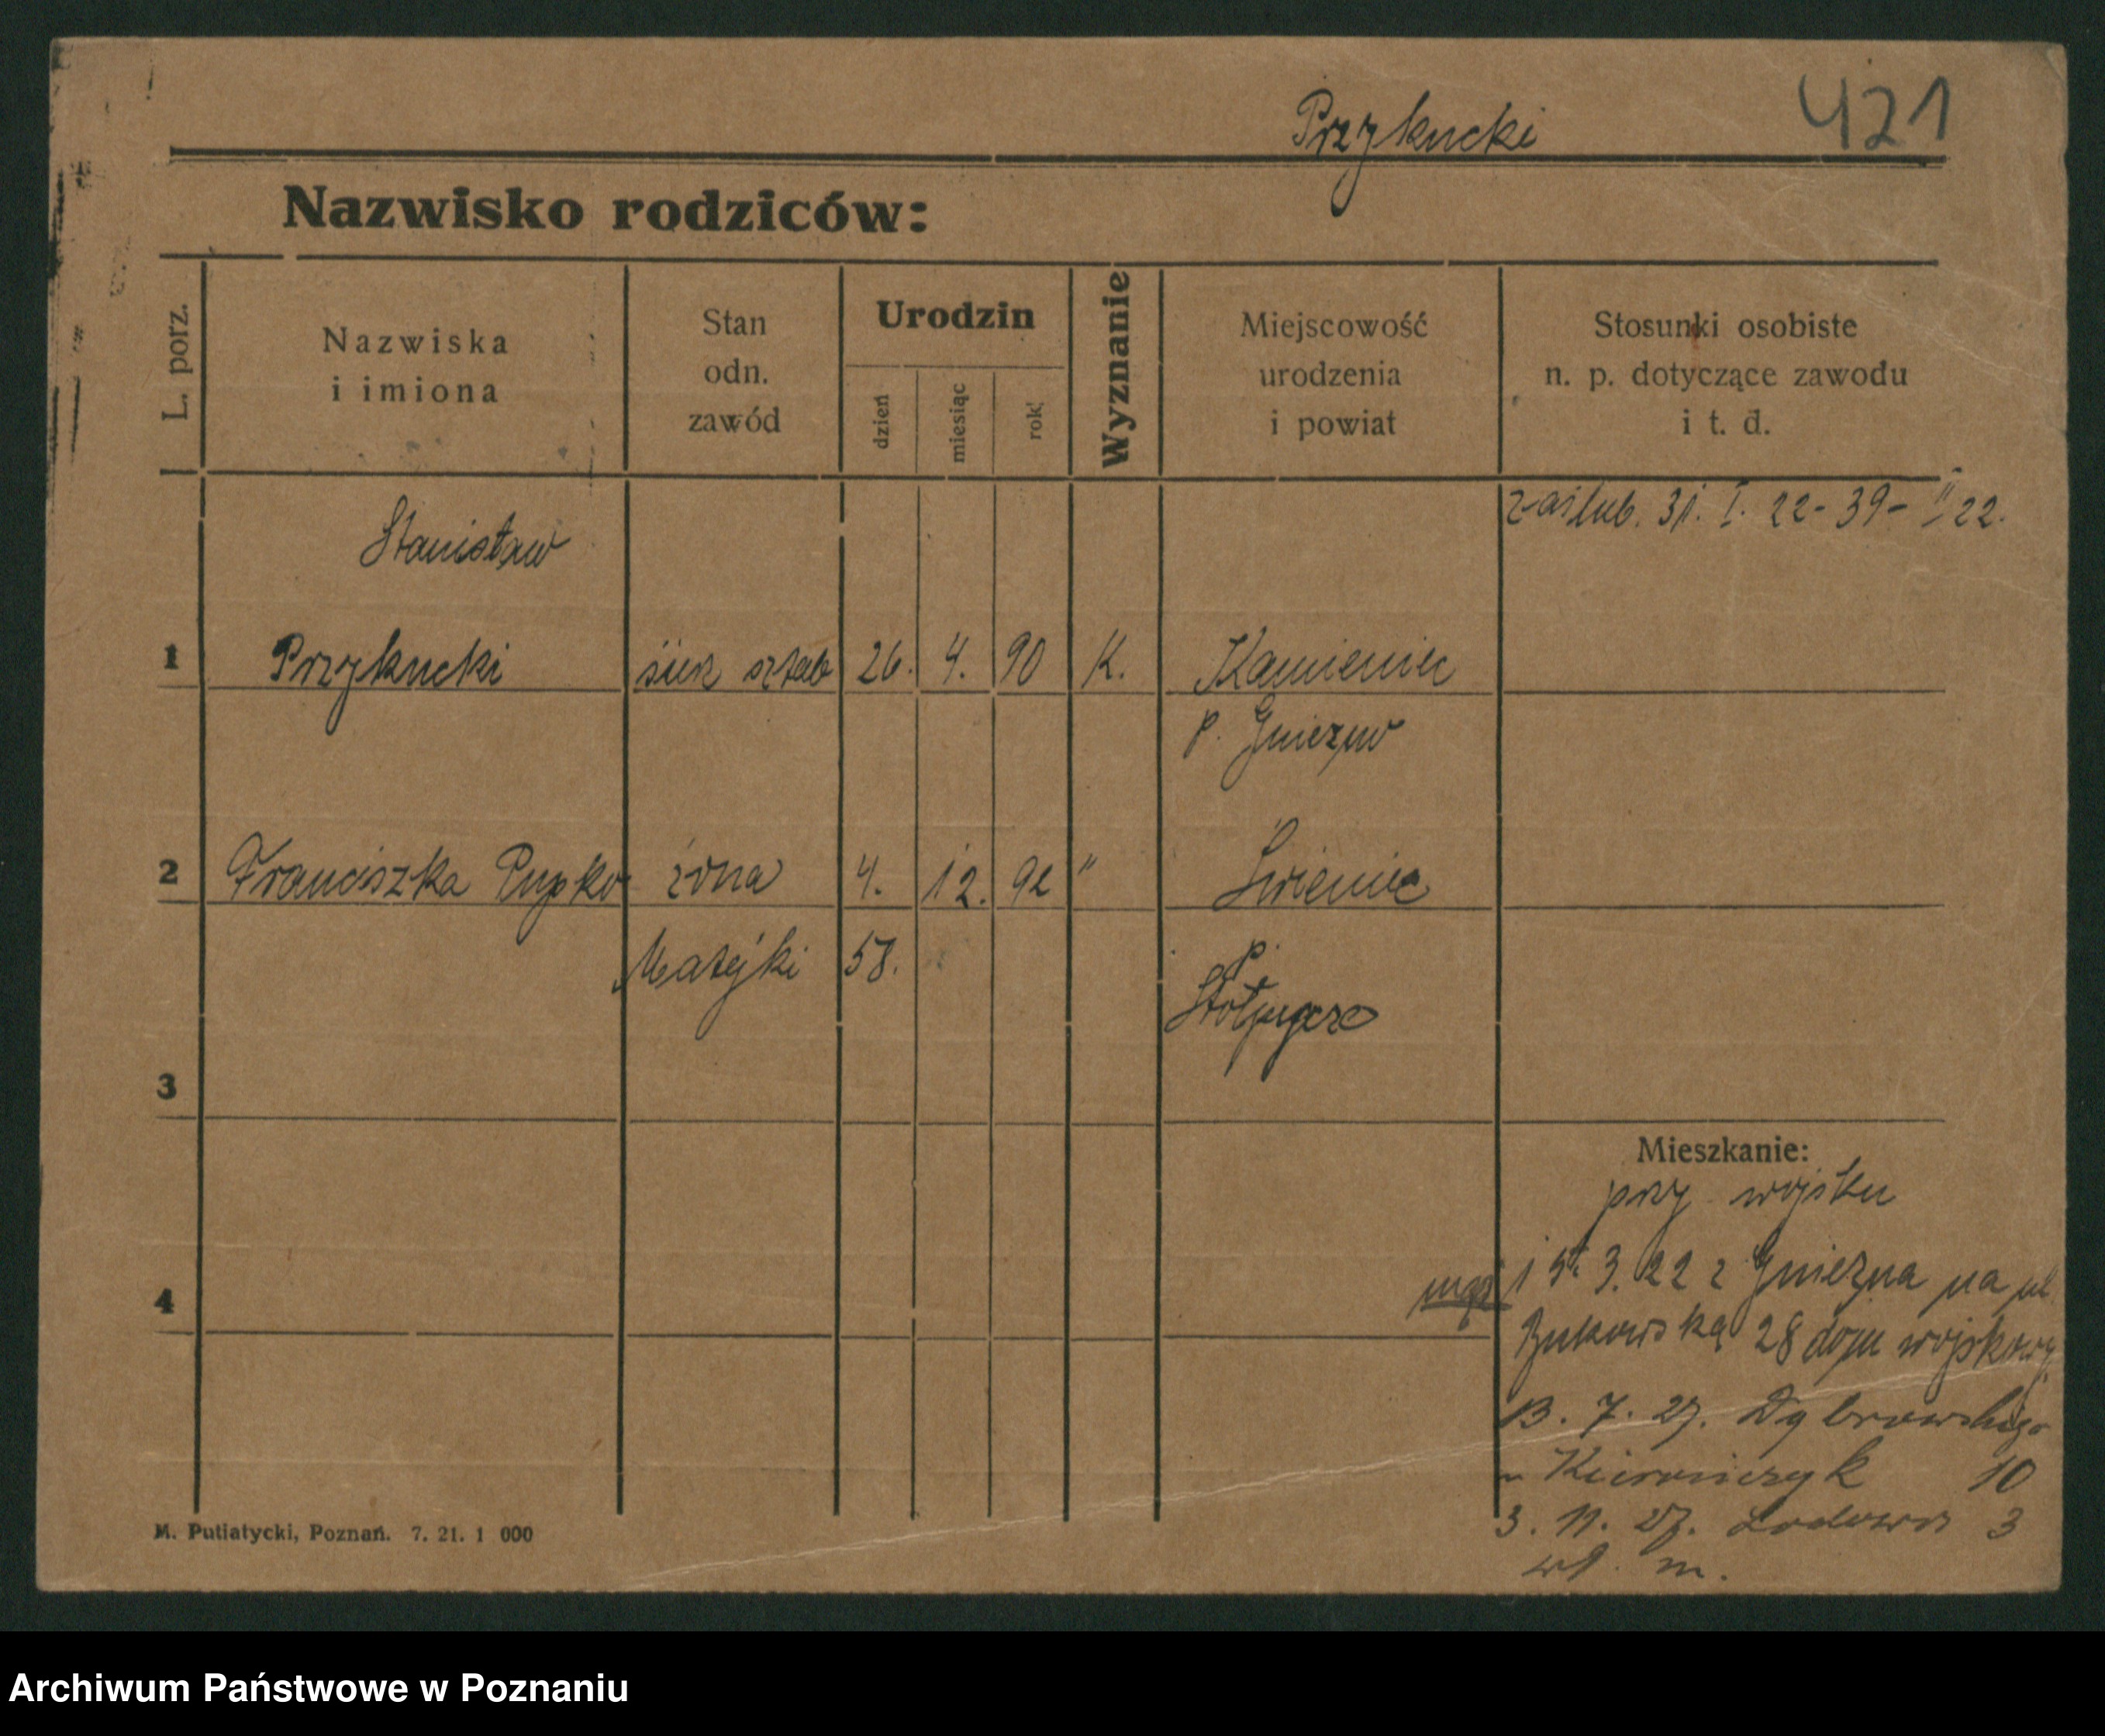 421
Przykucki
Nazwisko rodziców:
L. porz.
Nazwiska
i imiona
Stan
odn.
zawód
Urodzin
dzień
miesiąc
rok
Wyznanie
Miejscowość
urodzenia
i powiat
Stosunki osobiste
n. p. dotyczące zawodu
i t. d.
zaślub. 31. I. 22 - 39 - II 22.
Stanisław
1 Przykucki sierż sztab 26. 4. 90 K. Kamieniec
p. Gniezno
2 Franciszka Pupko żona 4. 12. 92 "
Matejki 58. p.
3
Mieszkanie:
przy wojsku
3. 22 z Gniezna na ul.
4
Bukowską 28 dom wojskowy
13. 7. 27. Dąbrowskiego
10
3. 11. 27. 3
m.
M. Putiatycki, Poznań. 7. 21. 1 000
Archiwum Państwowe w Poznaniu